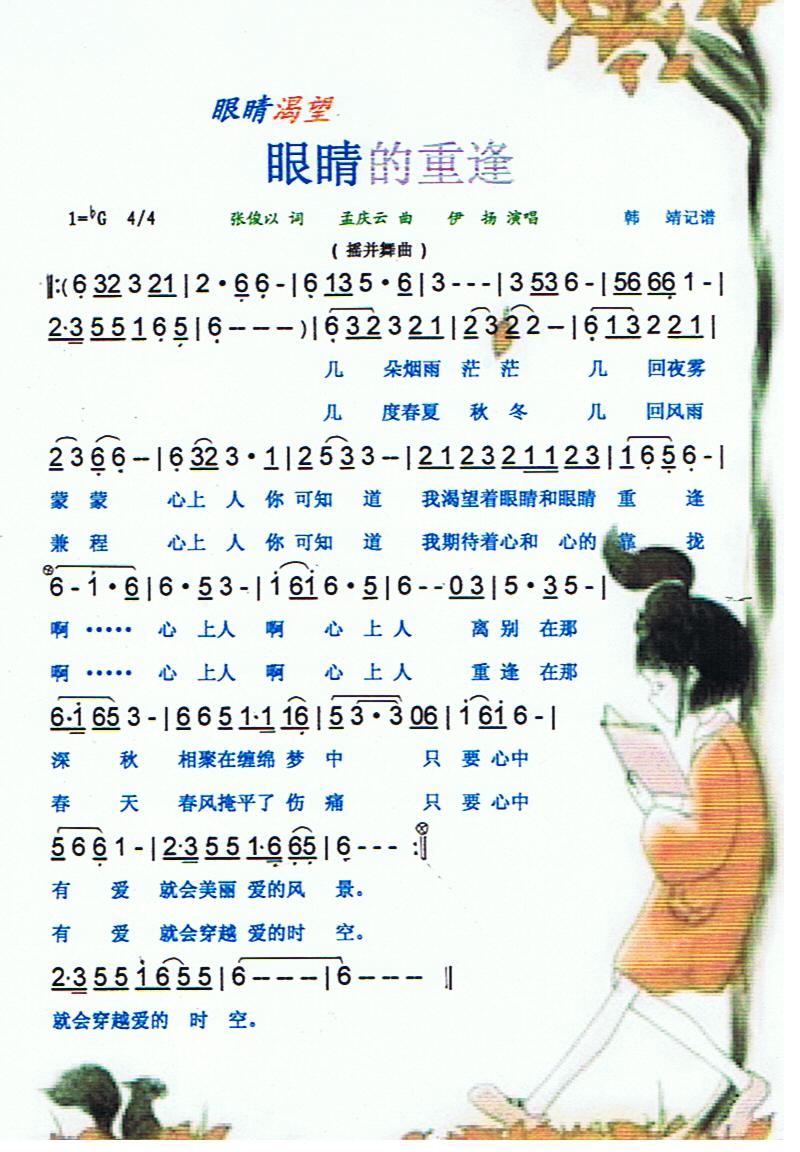 眼睛渴望
眼睛的重逢
1=♭G 4/4 张俊以 词 孟庆云 曲 伊 扬 演唱 韩 靖记谱
( 摇并舞曲 )
‖:( 6 32 3 21 | 2 · 6 6 - | 6 13 5 · 6 | 3 - - - | 3 53 6 - | 56 66 1 - |
2·3 5 5 1 6 5 | 6 - - - ) | 6 3 2 3 2 1 | 2 3 2 2 - - | 6 1 3 2 2 1 |
几 朵烟雨 茫 茫 几 回夜雾
几 度春夏 秋 冬 几 回风雨
2 3 6 6 - - | 6 32 3 · 1 | 2 5 3 3 - - | 2 1 2 3 2 1 1 2 3 | 1 6 5 6 - |
蒙 蒙 心上 人 你 可知 道 我渴望着眼睛和眼睛 重 逢
兼 程 心上 人 你 可知 道 我期待着心和 心的 靠 拢
6 - 1 · 6 | 6 · 5 3 - | 1 61 6 · 5 | 6 - - 0 3 | 5 · 3 5 - |
啊 ····· 心 上人 啊 心 上 人 离 别 在那
啊 ····· 心 上人 啊 心 上 人 重 逢 在那
6·1 65 3 - | 6 6 5 1·1 16 | 5 3 · 3 06 | 1 61 6 - |
深 秋 相聚在缠绵 梦 中 只 要 心中
春 天 春风掩平了 伤 痛 只 要 心中
5 6 6 1 - | 2·3 5 5 1·6 65 | 6 - - - :‖
有 爱 就会美丽 爱的风 景。
有 爱 就会穿越 爱的时 空。
2·3 5 5 1 6 5 5 | 6 - - - - | 6 - - - - ‖
就会穿越爱的 时 空。